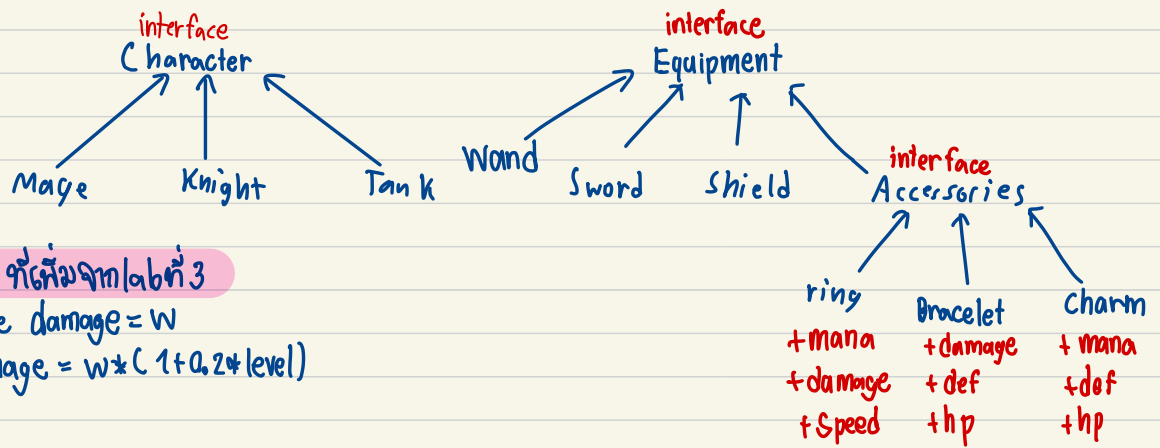 interface
Character
Mage
Knight
Tank
interface
Equipment
Wand
Sword
Shield
interface
Accessories
ring
+mana
+damage
+speed
Bracelet
+damage
+def
+hp
Charm
+mana
+def
+hp
ที่เพิ่มจากlabที่ 3
e damage = W
nage = W*(1+0.2*level)